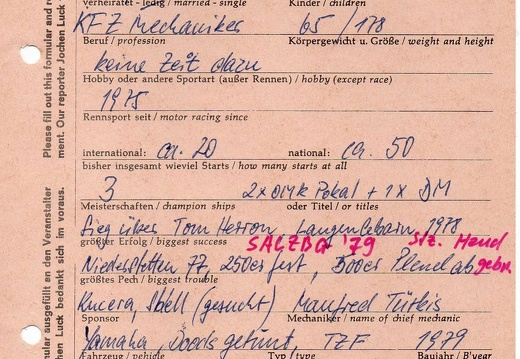 verheiratet - ledig / married - single Kinder / children
KFZ Mechaniker 65 / 178
Beruf / profession Körpergewicht u. Größe / weight and height
keine Zeit dazu
Hobby oder andere Sportart (außer Rennen) / hobby (except race)
1975
Rennsport seit / motor racing since
international: ca. 20 national: ca. 50
bisher insgesamt wieviel Starts / how many starts at all
3 2x OMK Pokal + 1x DM
Meisterschaften / champion ships oder Titel / or titles
Sieg über Tom Herron Langenlebarn 1978
größter Erfolg / biggest success SALZBG '79 Hand
Niederstetten 77, 250er fest, Pleuel ab gebr.
größtes Pech / biggest trouble
Kucera, Shell (gesucht) Manfred
Sponsor Mechaniker / name of chief mechanic
Yamaha, TZF 1979
Fahrzeug / vehicle Typ / type Baujahr / B'year
Please fill out this formular and re
ment. Our reporter Jochen Luck
mular ausgefüllt an den Veranstalter
hen Luck bedankt sich im voraus.